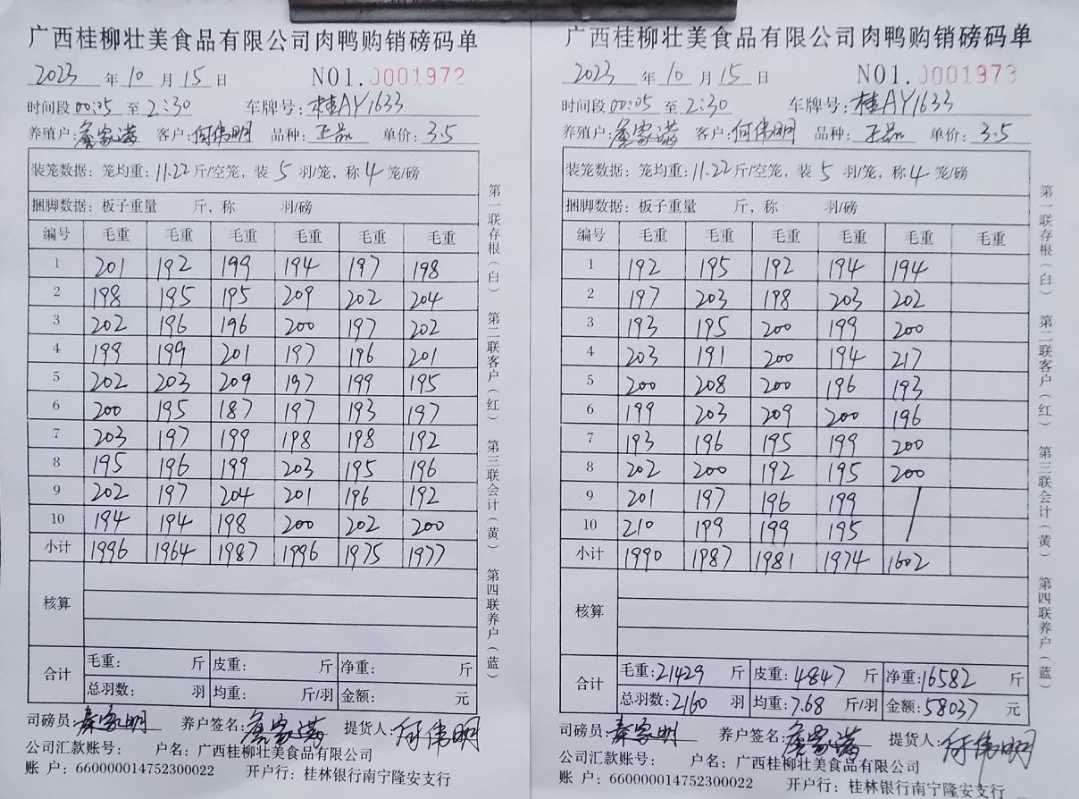 广西桂柳壮美食品有限公司肉鸭购销磅码单
2023 年 10 月 15 日 NO1. 0001972
时间段 00:05 至 2:30 车牌号: 桂AY1633
养殖户: 詹家满 客户: 何伟明 品种: 正品 单价: 3.5
装笼数据: 笼均重: 11.22 斤/空笼, 装 5 羽/笼, 称 4 笼/磅
捆脚数据: 板子重量 斤, 称 羽/磅
编号 毛重 毛重 毛重 毛重 毛重 毛重
1 201 192 199 194 197 198
2 198 195 195 209 202 204
3 202 196 196 200 197 202
4 199 199 201 197 196 201
5 202 203 209 197 199 195
6 200 195 187 197 193 197
7 203 197 199 198 198 192
8 195 196 199 203 195 196
9 202 197 204 201 196 192
10 194 194 198 200 202 200
小计 1996 1964 1987 1996 1975 1977
核算
合计 毛重: 斤 皮重: 斤 净重: 斤
总羽数: 羽 均重: 斤/羽 金额: 元
司磅员: 秦家明 养户签名: 詹家满 提货人: 何伟明
公司汇款账号: 户名: 广西桂柳壮美食品有限公司
账 户: 660000014752300022 开户行: 桂林银行南宁隆安支行
第一联存根(白) 第二联客户(红) 第三联会计(黄) 第四联养户(蓝)
广西桂柳壮美食品有限公司肉鸭购销磅码单
2023 年 10 月 15 日 NO1. 0001973
时间段 00:05 至 2:30 车牌号: 桂AY1633
养殖户: 詹家满 客户: 何伟明 品种: 正品 单价: 3.5
装笼数据: 笼均重: 11.22 斤/空笼, 装 5 羽/笼, 称 4 笼/磅
捆脚数据: 板子重量 斤, 称 羽/磅
编号 毛重 毛重 毛重 毛重 毛重 毛重
1 192 195 192 194 194
2 197 203 198 203 202
3 193 195 200 199 200
4 203 191 200 194 217
5 200 208 200 196 193
6 199 203 209 200 196
7 193 196 195 199 200
8 202 200 192 195 200
9 201 197 196 199 /
10 210 199 199 195
小计 1990 1987 1981 1974 1602
核算
合计 毛重: 21429 斤 皮重: 4847 斤 净重: 16582 斤
总羽数: 2160 羽 均重: 7.68 斤/羽 金额: 58037 元
司磅员: 秦家明 养户签名: 詹家满 提货人: 何伟明
公司汇款账号: 户名: 广西桂柳壮美食品有限公司
账 户: 660000014752300022 开户行: 桂林银行南宁隆安支行
第一联存根(白) 第二联客户(红) 第三联会计(黄) 第四联养户(蓝)